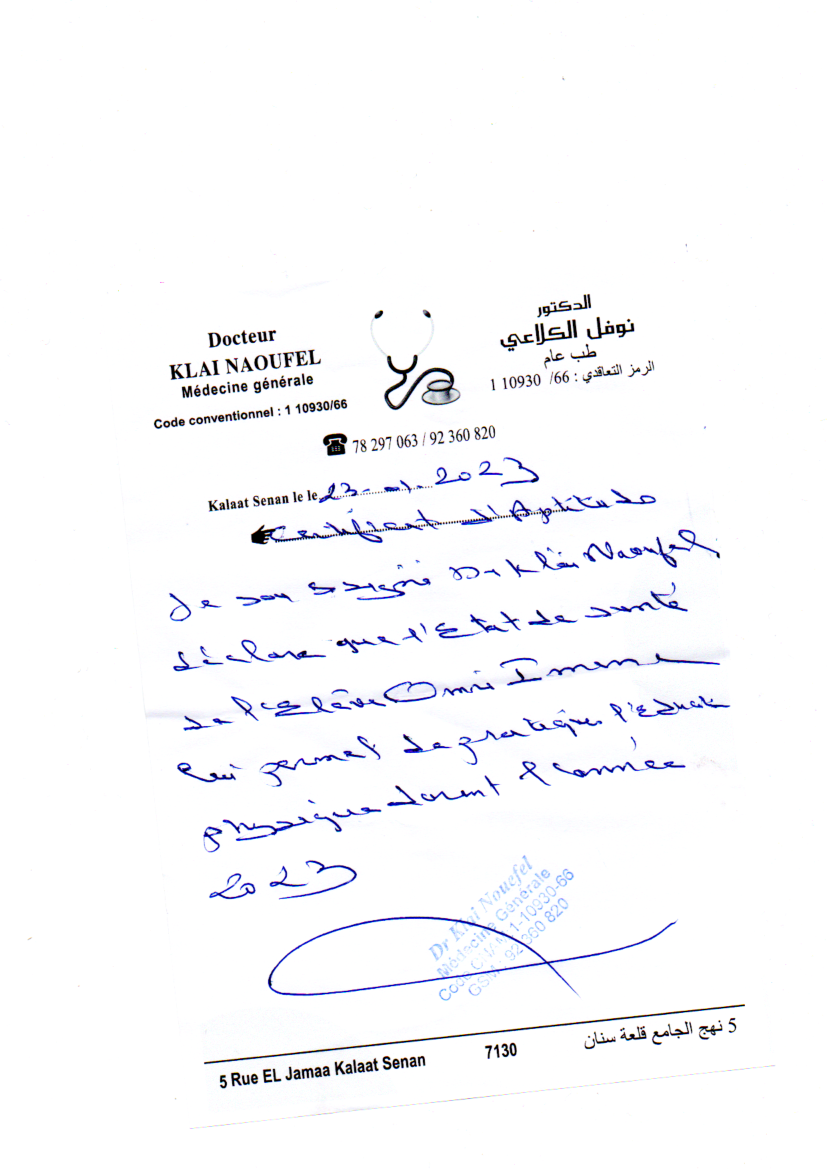 Docteur
KLAI NAOUFEL
Médecine générale
Code conventionnel : 1 10930/66
الدكتور
نوفل الكلاعي
طب عام
الرمز التعاقدي : 66/ 10930 1
78 297 063 / 92 360 820
Kalaat Senan le le 23-01-2023
Certificat d'Aptitude
Je sou ssigné Dr Klai Naoufel
déclare que l'Etat de santé
de l'Elève Omri Imene
Lui permet de pratiquer l'Educat
physique durant l'année
2023
Dr Klai Nouefel
Médecine Générale
Code CNAM 1-10930-66
GSM : 92 360 820
5 نهج الجامع قلعة سنان
5 Rue EL Jamaa Kalaat Senan 7130